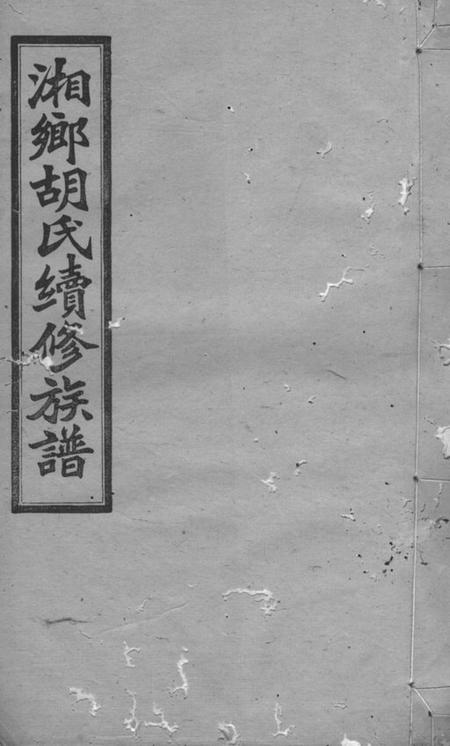 湘鄉胡氏續修族譜